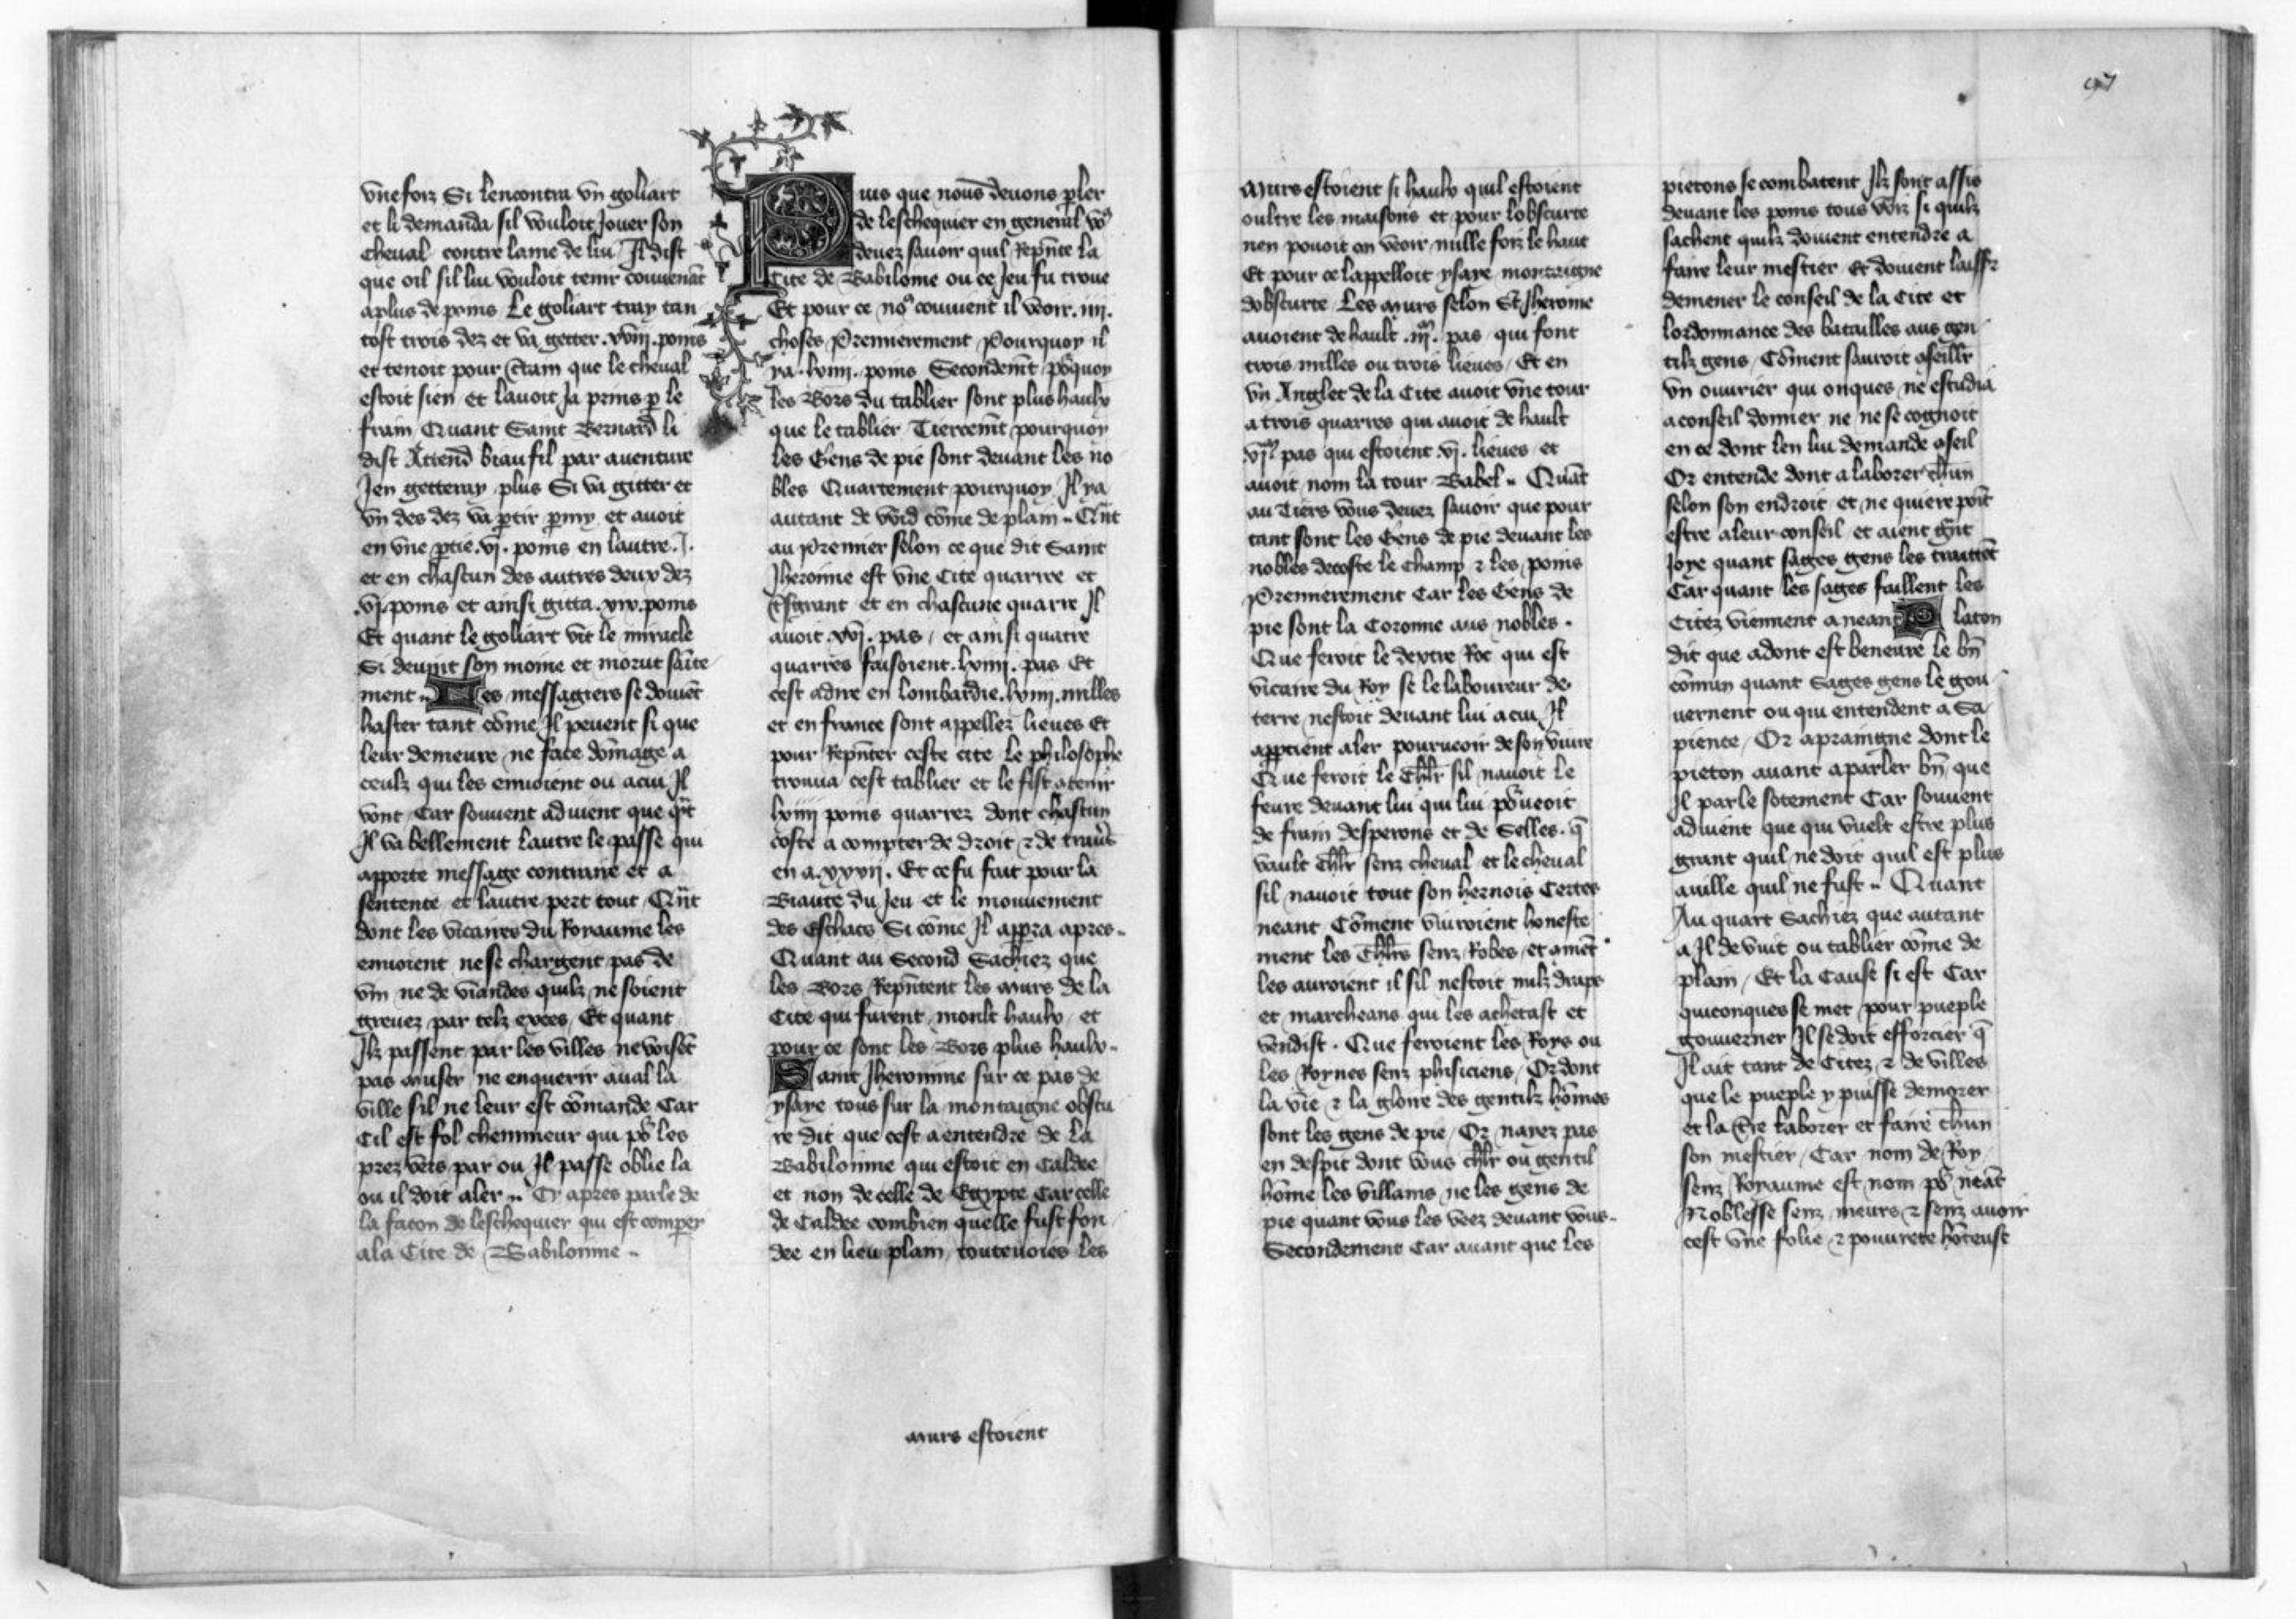 vne foiz Si lencontra vn goliart
et li demanda sil vouloit Jouer son
cheual contre lame de lui Il dist
que oil sil lui vouloit tenir couuenāt
a plus de poins Le goliart tray tan
tost trois dez et va getter .xviij. poins
et tenoit pour c̄tain que le cheual
estoit sien et lauoit Ja prins p̲ le
frain Quant Saint Bernard li
dist Attend biau fil par auenture
Jen getteray plus Si va gitter et
vn des dez va p̲tir p̲my et auoit
en vne p̲tie .vj. poins en lautre .J.
et en chascun des autres deux dez
.vj. poins et ainsi gitta .xix. poins
Et quant le goliart vit le miracle
Si deuint son moine et morut sāite
ment .. Les messagiers se doiuēt
haster tant cōme Il peuent si que
leur demeure ne face dōmage a
ceulz qui les enuoient ou a cui Il
vont Car souuent aduient que qn̄t
Il va bellement lautre le passe qui
apporte message contraire et a
sentence et lautre pert tout Qn̄t
dont les vicaires du Royaume les
enuoient ne se chargent pas de
vin ne de viandes quilz ne soient
greuez par telz exces Et quant
Ilz passent par les villes ne voisēt
pas muser ne enquerir aual la
ville sil ne leur est cōmande Car
Cil est fol chemineur qui po᷑ les
prez vers par ou Il passe oblie la
ou il doit aler .. Cy apres parle de
la facon de leschequier qui est comper
a la Cite de Babilonne ..
Puis que nous deuons p̲ler
de leschequier en general vo᷒
deuez sauoir quil Rep̄nte la
Cite de Babilonie ou ce Jeu fu troue
Et pour ce no᷒ couuient il veoir .iiij.
choses Premierement Pourquoy il
ya .lxiiij. poins Secondemēt po᷑quoy
les Bors du tablier sont plus haulx
que le tablier Tiercemēt pourquoy
les Gens de pie sont deuant les no
bles Quartement pourquoy Il ya
autant de void cōme de plain .. Qn̄t
au Premier selon ce que dit Saint
Jheronime est vne Cite quarree et
et en chascune quarre Il
auoit .xvj. pas / et ainsi quatre
quarres faisoient .lxiiij. pas Et
cest adire en lombardie .lxiiij. milles
et en france sont appellez lieues Et
pour Rep̄nter ceste cite le philosophe
trouua cest tablier et le fist atenir
lxiiij poins quarrez dont chascun
coste a compter de droit ⁊ de trauers
en a .xxxij. Et ce fu fait pour la
Biaute du Jeu et le mouuement
des Eschacs Si cōme Il appra apres ..
Quant au Second Sachiez que
les Bors Rep̄ntent les murs de la
Cite qui furent moult haulx / et
pour ce sont les Bors plus haulx ..
Saint Jheronime sur ce pas de
ysaye tous sur la montaigne obscu
re dit que cest a entendre de la
Babilonine qui estoit en Caldee
et non de celle de Egypte Car celle
de Caldee combien quelle fust fon
dee en lieu plain / touteuoies les
murs estoient
97
Murs estoient si haulx quil estoient
oultre les maisons et pour lobscurte
nen pouoit on veoir mille foiz le hault
Et pour ce lappelloit ysaye montaigne
dobscurte Les murs selon St Jherome
auoient de hault .iijm. pas qui font
trois milles ou trois lieues / Et en
vn Anglet de la Cite auoit vne tour
a trois quarres qui auoit de hault
.vjm. pas qui estoient .vj. lieues et
auoit nom la tour Babel .. Quāt
au Tiers vous deuez sauoir que pour
tant sont les Gens de pie deuant les
nobles decoste le champ ⁊ les poins
Premierement Car les Gens de
pie sont la Coronne aus nobles .
Que feroit le dextre Roc qui est
vicaire du Roy se le laboureur de
terre nestoit deuant lui a cui Il
app̲tient aler pourueoir de son viure
Que feroit le ch̄lr sil nauoit le
feure deuant lui qui lui po᷑ueoit
de frain desperons et de Selles . q̄
vault ch̄lr senz cheual et le cheual
sil nauoit tout son hernois Certes
neant Cōment viuroient honeste
ment les ch̄lrs senz Robes / et cōmēt
les auroient il sil nestoit nulz draps
et marcheans qui les achetast et
vendist . Que feroient les Roys ou
les Roynes senz phisiciens / Or dont
la vie ⁊ la gloire des gentilz hōmes
sont les gens de pie / Or nayez pas
en despit dont vous ch̄lr ou gentil
hōme les villains ne les gens de
pie quant vous les veez deuant vous ..
Secondement Car auant que les
pietons se combatent Ilz sont assis
deuant les poins tous voiz si quilz
sachent quilz doiuent entendre a
faire leur mestier Et doiuent laissr̄
demener le conseil de la Cite et
lordonnance des batailles aus gen
tilz gens / Cōment sauroit cōseillr̄
vn ouurier qui onques ne estudia
a conseil donner ne ne se cognoit
en ce dont len lui demande cōseil
Or entende dont a laborer chūn
selon son endroit et ne quiere poīt
estre a leur conseil et aient gn̄t
Joye quant sages gens les traittēt
Car quant les sages faillent les
Citez viennent a neant Platon
dit que adont est beneure le bn̄
cōmun quant Sages gens le gou
uernent ou qui entendent a Sa
pience / Or apraingne dont le
pieton auant a parler bn̄ que
Il parle sotement Car souuent
aduient que qui vuelt estre plus
grant quil ne doit quil est plus
auille quil ne fust .. Quant
Au quart Sachiez que autant
a Il de vuit ou tablier cōme de
plain / Et la Cause si est Car
quiconques se met pour pueple
gouuerner Il se doit efforcier q̄
Il ait tant de Citez ⁊ de villes
que le pueple y puisse demorer
et la t̄re laborer et faire chūn
son mestier / Car nom de Roy
senz Royaume est nom po᷑ neāt
Noblesse senz meurs ⁊ senz auoir
cest vne folie ⁊ pouurete hōteuse